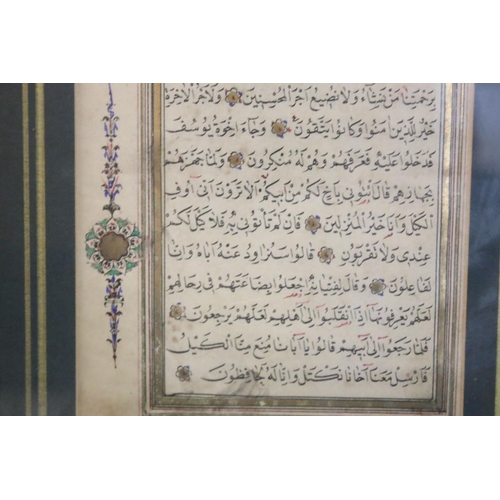 بِرَحْمَتِنَا مَنْ نَشَاءُ وَلَا نُضِيعُ اَجْرَ الْمُحْسِنِينَ وَلَاَجْرُ الْاٰخِرَةِ
خَيْرٌ لِلَّذِينَ اٰمَنُوا وَكَانُوا يَتَّقُونَ وَجَاءَ اِخْوَةُ يُوسُفَ
فَدَخَلُوا عَلَيْهِ فَعَرَفَهُمْ وَهُمْ لَهُ مُنْكِرُونَ وَلَمَّا جَهَّزَهُمْ
بِجَهَازِهِمْ قَالَ ائْتُونِي بِاَخٍ لَكُمْ مِنْ اَبِيكُمْ اَلَا تَرَوْنَ اَنِّي اُوفِي
الْكَيْلَ وَاَنَا خَيْرُ الْمُنْزِلِينَ فَاِنْ لَمْ تَأْتُونِي بِهِ فَلَا كَيْلَ لَكُمْ
عِنْدِي وَلَا تَقْرَبُونِ قَالُوا سَنُرَاوِدُ عَنْهُ اَبَاهُ وَاِنَّا
لَفَاعِلُونَ وَقَالَ لِفِتْيَانِهِ اجْعَلُوا بِضَاعَتَهُمْ فِي رِحَالِهِمْ
لَعَلَّهُمْ يَعْرِفُونَهَا اِذَا انْقَلَبُوا اِلٰى اَهْلِهِمْ لَعَلَّهُمْ يَرْجِعُونَ
فَلَمَّا رَجَعُوا اِلٰى اَبِيهِمْ قَالُوا يَا اَبَانَا مُنِعَ مِنَّا الْكَيْلُ
فَاَرْسِلْ مَعَنَا اَخَانَا نَكْتَلْ وَاِنَّا لَهُ لَحَافِظُونَ